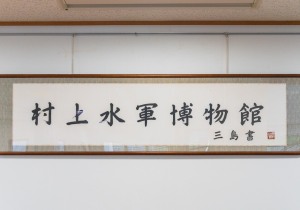 村上水軍博物館
三島書